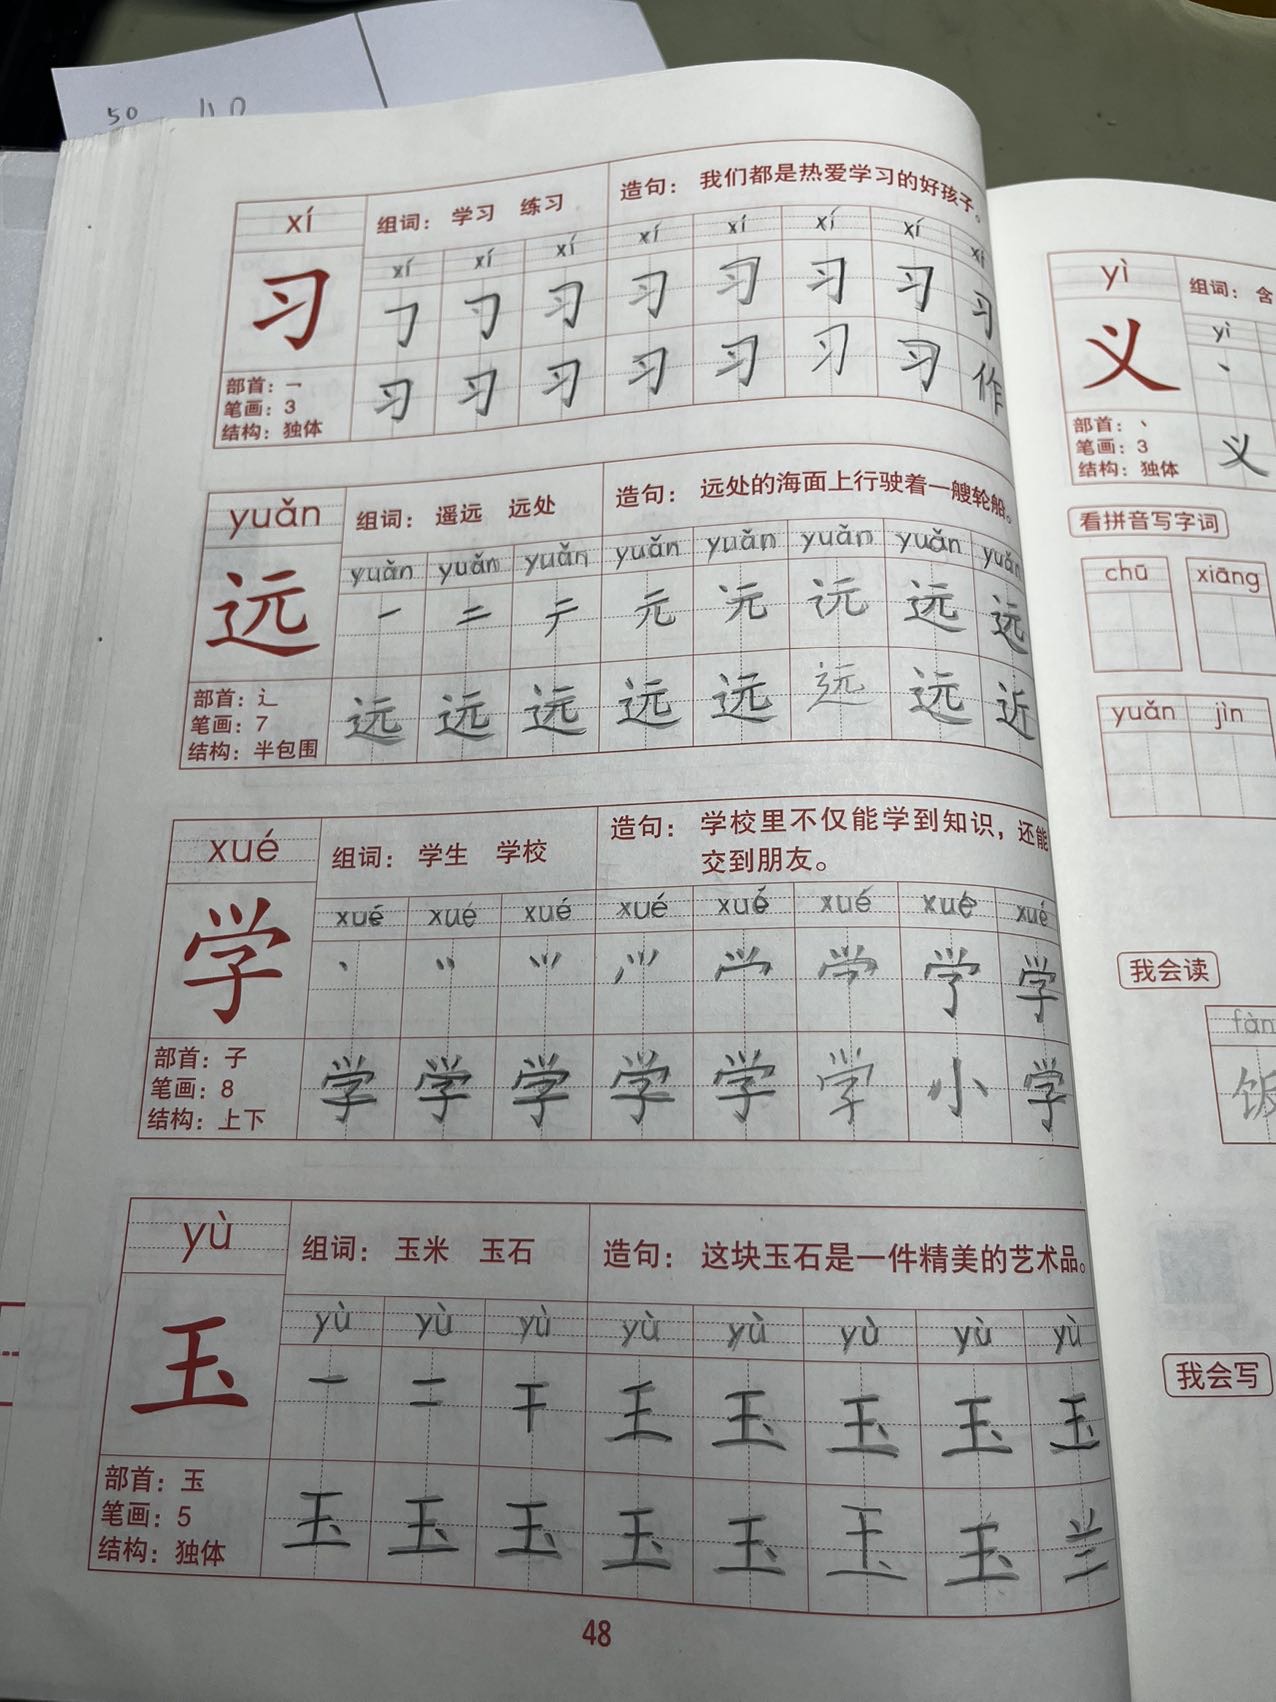 50 40
xí
组词：学习 练习
造句：我们都是热爱学习的好孩子。
xí xí xí xí xí xí xí xí
习
㇆ 习 习 习 习 习 习
部首：㇀
笔画：3
结构：独体
习 习 习 习 习 习 习 作
yuǎn
组词：遥远 远处
造句：远处的海面上行驶着一艘轮船。
yuǎn yuǎn yuǎn yuǎn yuǎn yuǎn yuǎn yuǎn
远
一 二 元 远 远
部首：辶
笔画：7
结构：半包围
远 远 远 远 远 远 远 近
xué
组词：学生 学校
造句：学校里不仅能学到知识，还能
交到朋友。
xué xué xué xué xué xué xué xué
学
丶 学
部首：子
笔画：8
结构：上下
学 学 学 学 学 学 小 学
yù
组词：玉米 玉石
造句：这块玉石是一件精美的艺术品。
yù yù yù yù yù yù yù yù
玉
一 二 干 王 玉 玉 玉 玉
部首：玉
笔画：5
结构：独体
玉 玉 玉 玉 玉 玉 玉 兰
48
yì
组词：含
yì
义
丶
部首：丶
笔画：3
结构：独体
义
看拼音写字词
chū xiāng
yuǎn jìn
我会读
fàn
饭
我会写